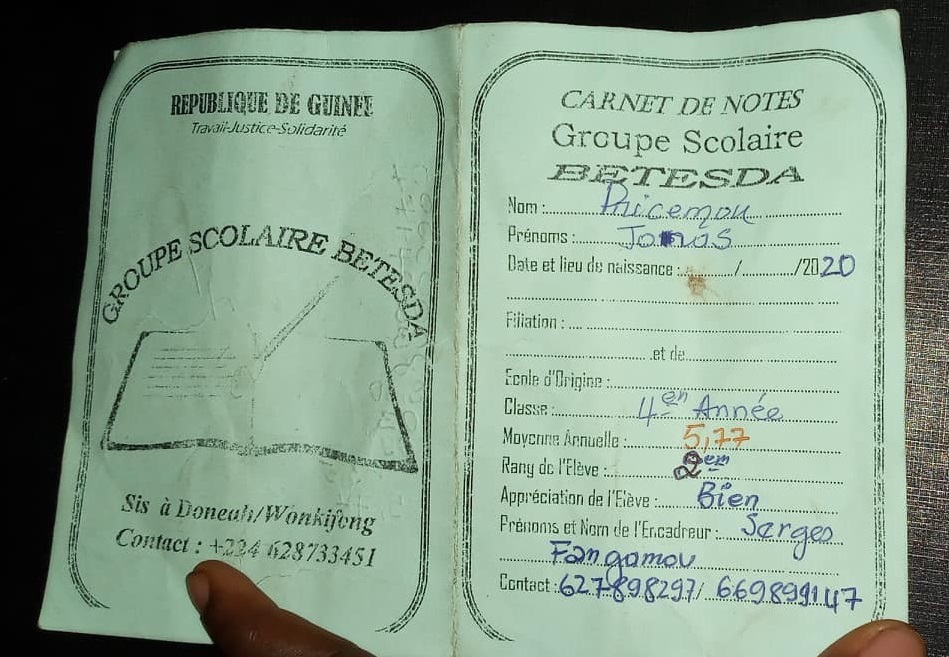 REPUBLIQUE DE GUINEE
Travail-Justice-Solidarité
GROUPE SCOLAIRE BETESDA
Sis à Doneah/Wonkifong
Contact : +224 628733451
CARNET DE NOTES
Groupe Scolaire
BETESDA
Nom :
Prénoms : Jonas
Date et lieu de naissance : / /2020
Filiation :
et de
Ecole d'Origine :
Classe : 4en Année
Moyenne Annuelle : 5,77
Rang de l'Elève : 2em
Appréciation de l'Elève : Bien
Prénoms et Nom de l'Encadreur : Serges
Fangamou
Contact : 627898297/ 669899147